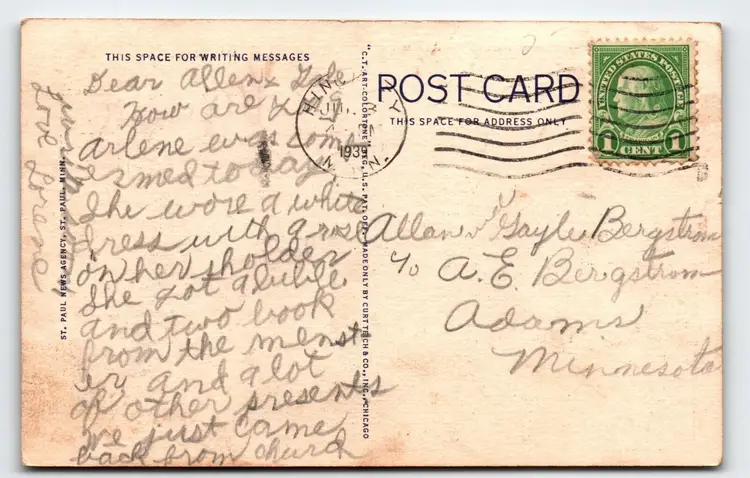 THIS SPACE FOR WRITING MESSAGES
Dear Allen & Gale
How are you
Arlene was comf
e smed today
She wore a white
dress with a rose
on her sholder
She got a bible
and two book
from the menst
er and a lot
of other presents
we just came
back from church
Love Lorane
ST. PAUL NEWS AGENCY, ST. PAUL, MINN.
"C.T. ART-COLORTONE" REG. U.S. PAT. OFF. MADE ONLY BY CURT TEICH & CO., INC., CHICAGO
POST CARD
THIS SPACE FOR ADDRESS ONLY
1939
UNITED STATES POSTAGE
1 1
CENT
Allan & Gayle Bergstrom
c/o A.E. Bergstrom
Adams
Minnesota